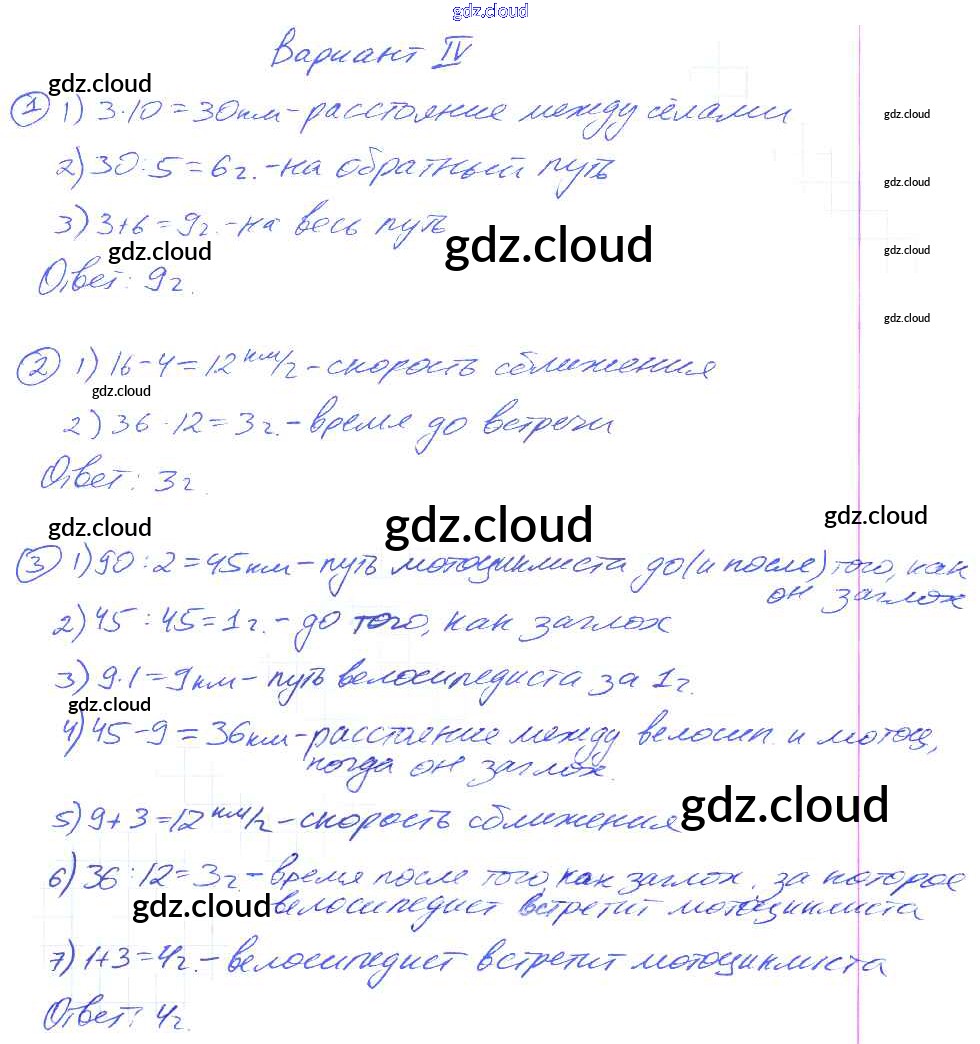 gdz.cloud
Вариант IV
gdz.cloud
1 1) 3·10=30км-расстояние между сёлами
gdz.cloud
2) 30:5=6г.-на обратный путь
gdz.cloud
3) 3+6=9г.-на весь путь
gdz.cloud
gdz.cloud
gdz.cloud
Ответ: 9г.
gdz.cloud
2 1) 16-4=12км/г-скорость сближения
gdz.cloud
2) 36:12=3г.-время до встречи
Ответ: 3г.
gdz.cloud
gdz.cloud
gdz.cloud
3 1) 90:2=45км-путь мотоциклиста до(и после) того, как
он заглох
2) 45:45=1г.-до того, как заглох
3) 9·1=9км-путь велосипедиста за 1г.
gdz.cloud
4) 45-9=36км-расстояние между велосип. и мотоц,
когда он заглох.
gdz.cloud
5) 9+3=12км/г-скорость сближения
6) 36:12=3г.-время после того, как заглох, за которое
gdz.cloud
велосипедист встретит мотоциклиста
7) 1+3=4г.-велосипедист встретит мотоциклиста
Ответ: 4г.